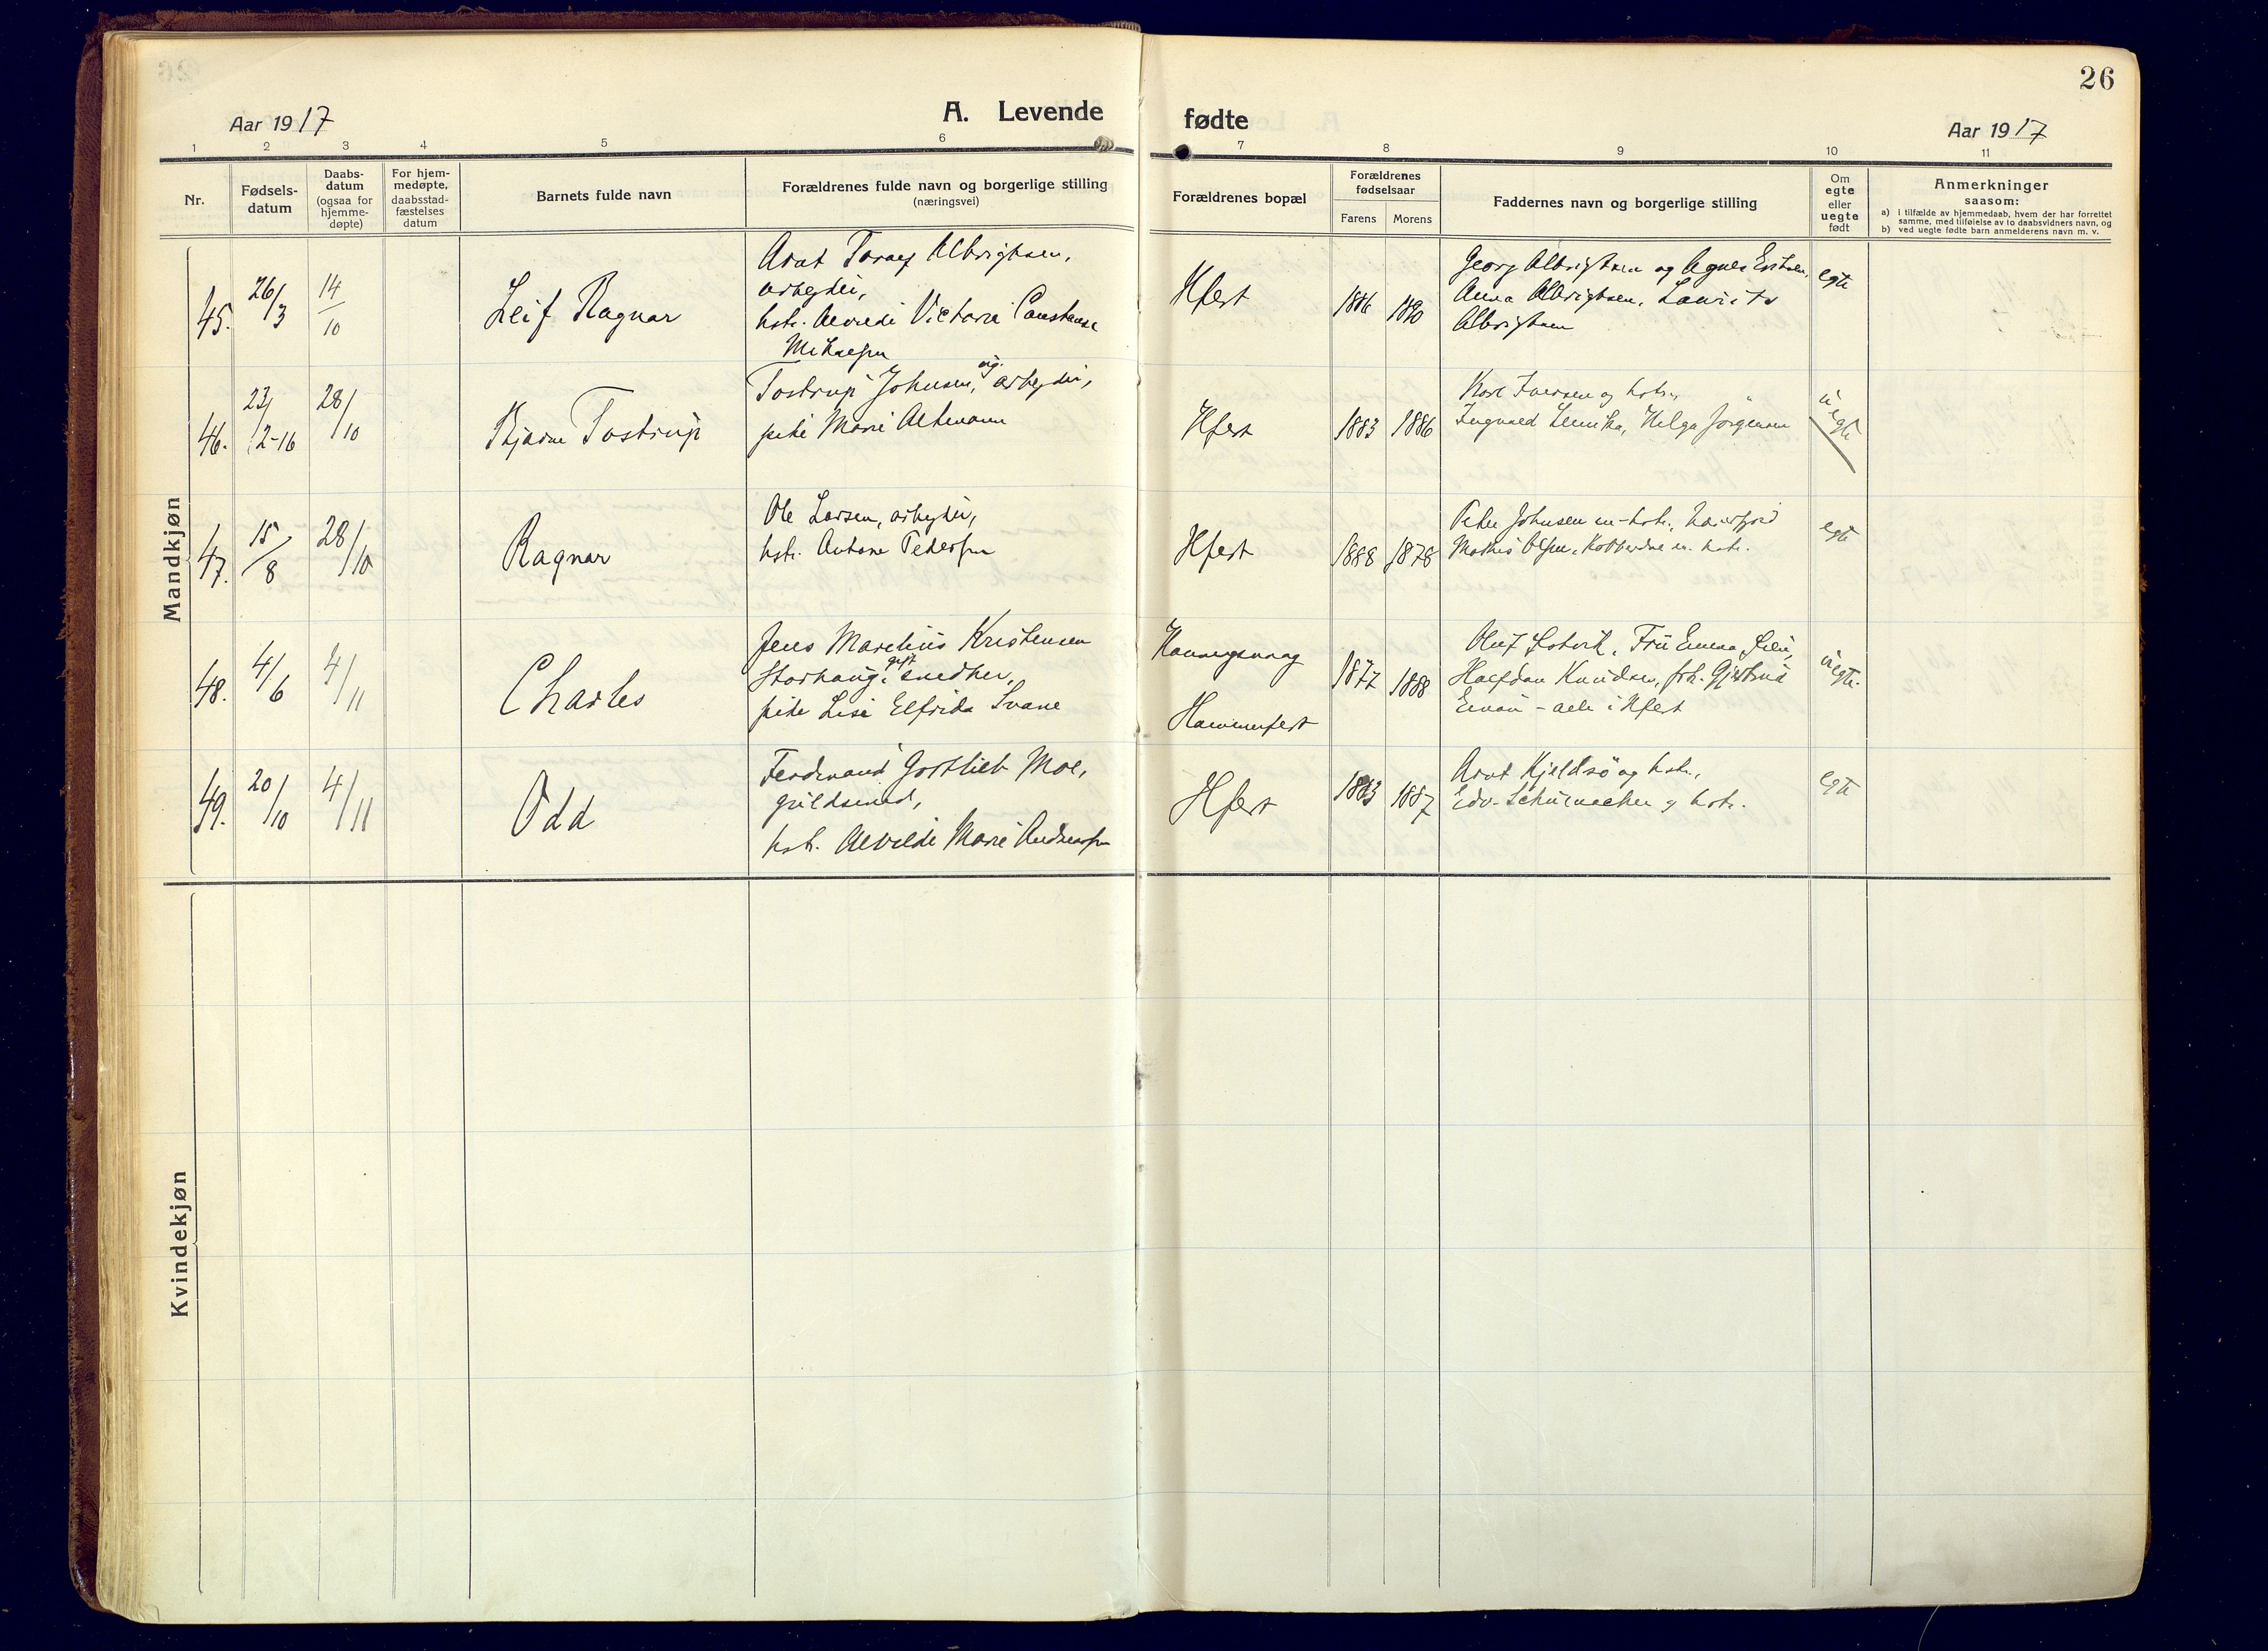 26
Aar 1917
A. Levende
fødte
Aar 1917
1 2 3 4 5 6 7 8 9 10 11
Nr.
Fødsels-
datum
Daabs-
datum
(ogsaa for
hjemme-
døpte)
For hjem-
medøpte,
daabsstad-
fæstelses
datum
Barnets fulde navn
Forældrenes fulde navn og borgerlige stilling
(næringsvei)
Forældrenes bopæl
Forældrenes
fødselsaar
Farens Morens
Faddernes navn og borgerlige stilling
Om
egte
eller
uegte
født
Anmerkninger
saasom:
a) i tilfælde av hjemmedaab, hvem der har forrettet
samme, med tilføielse av to daabsvidners navn, og
b) ved uegte fødte barn anmelderens navn m. v.
Mandkjøn
45. 26/3 14/10
Leif Ragnar
Arnt Albrigtsen,
arbeyder,
hstr. Victoria Constanse
Mikaelsen
Hfest
1886 1890
Georg Albrigtsen og Agnes
Anna Albrigtsen, Laurits
Albrigtsen
egte
46. 23/12-16 28/10
Bjarne Tostrup
Tostrup Johnsen, ug. arbeyder,
pike Marie Altmann
Hfest
1883 1886
Karl Iversen og hstr.,
Ingvald Helga Jörgensen
uegte
47. 15/8 28/10
Ragnar
Ole Larsen, arbeyder,
hstr. Antone Pedersen
Hfest
1888 1878
Peder Johnsen m. hstr.,
Olsen, m. hstr.
egte
48. 4/6 4/11
Charles
Jens Marelius Kristensen
Storhaug, gift snedker,
pike Lise Elfrida Svane
Honningsvaag
Hammerfest
1877 1888
Oluf Fru Emma
Halfdan Knudsen, frk. Gjertrud
- alle i Hfest
uegte.
49. 20/10 4/11
Odd
Ferdinand Gottlieb Moe,
guldsmed,
hstr. Alvilde Marie Andreassen
Hfest
1883 1887
Arnt Kjeldsö og hstr.,
Edv. Schumacher og hstr.
egte
Kvindekjøn